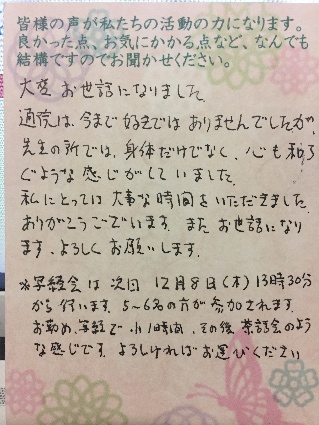 皆様の声が私たちの活動の力になります。
良かった点、お気にかかる点など、なんでも
結構ですのでお聞かせください。
大変お世話になりました。
通信は、今まで好きではありませんでしたが、
先生の所では、身体だけでなく、心も和ら
ぐような感じがしていました。
私にとっては大事な時間をいただきました。
ありがとうございます。またお世話になり
ます、よろしくお願いします。
※写経会は次回 12月8日(木)13時30分
から行います。5~6名の方が参加されます。
お勤め、写経で小1時間、その後茶話会のよう
な感じです。よろしければお運びください